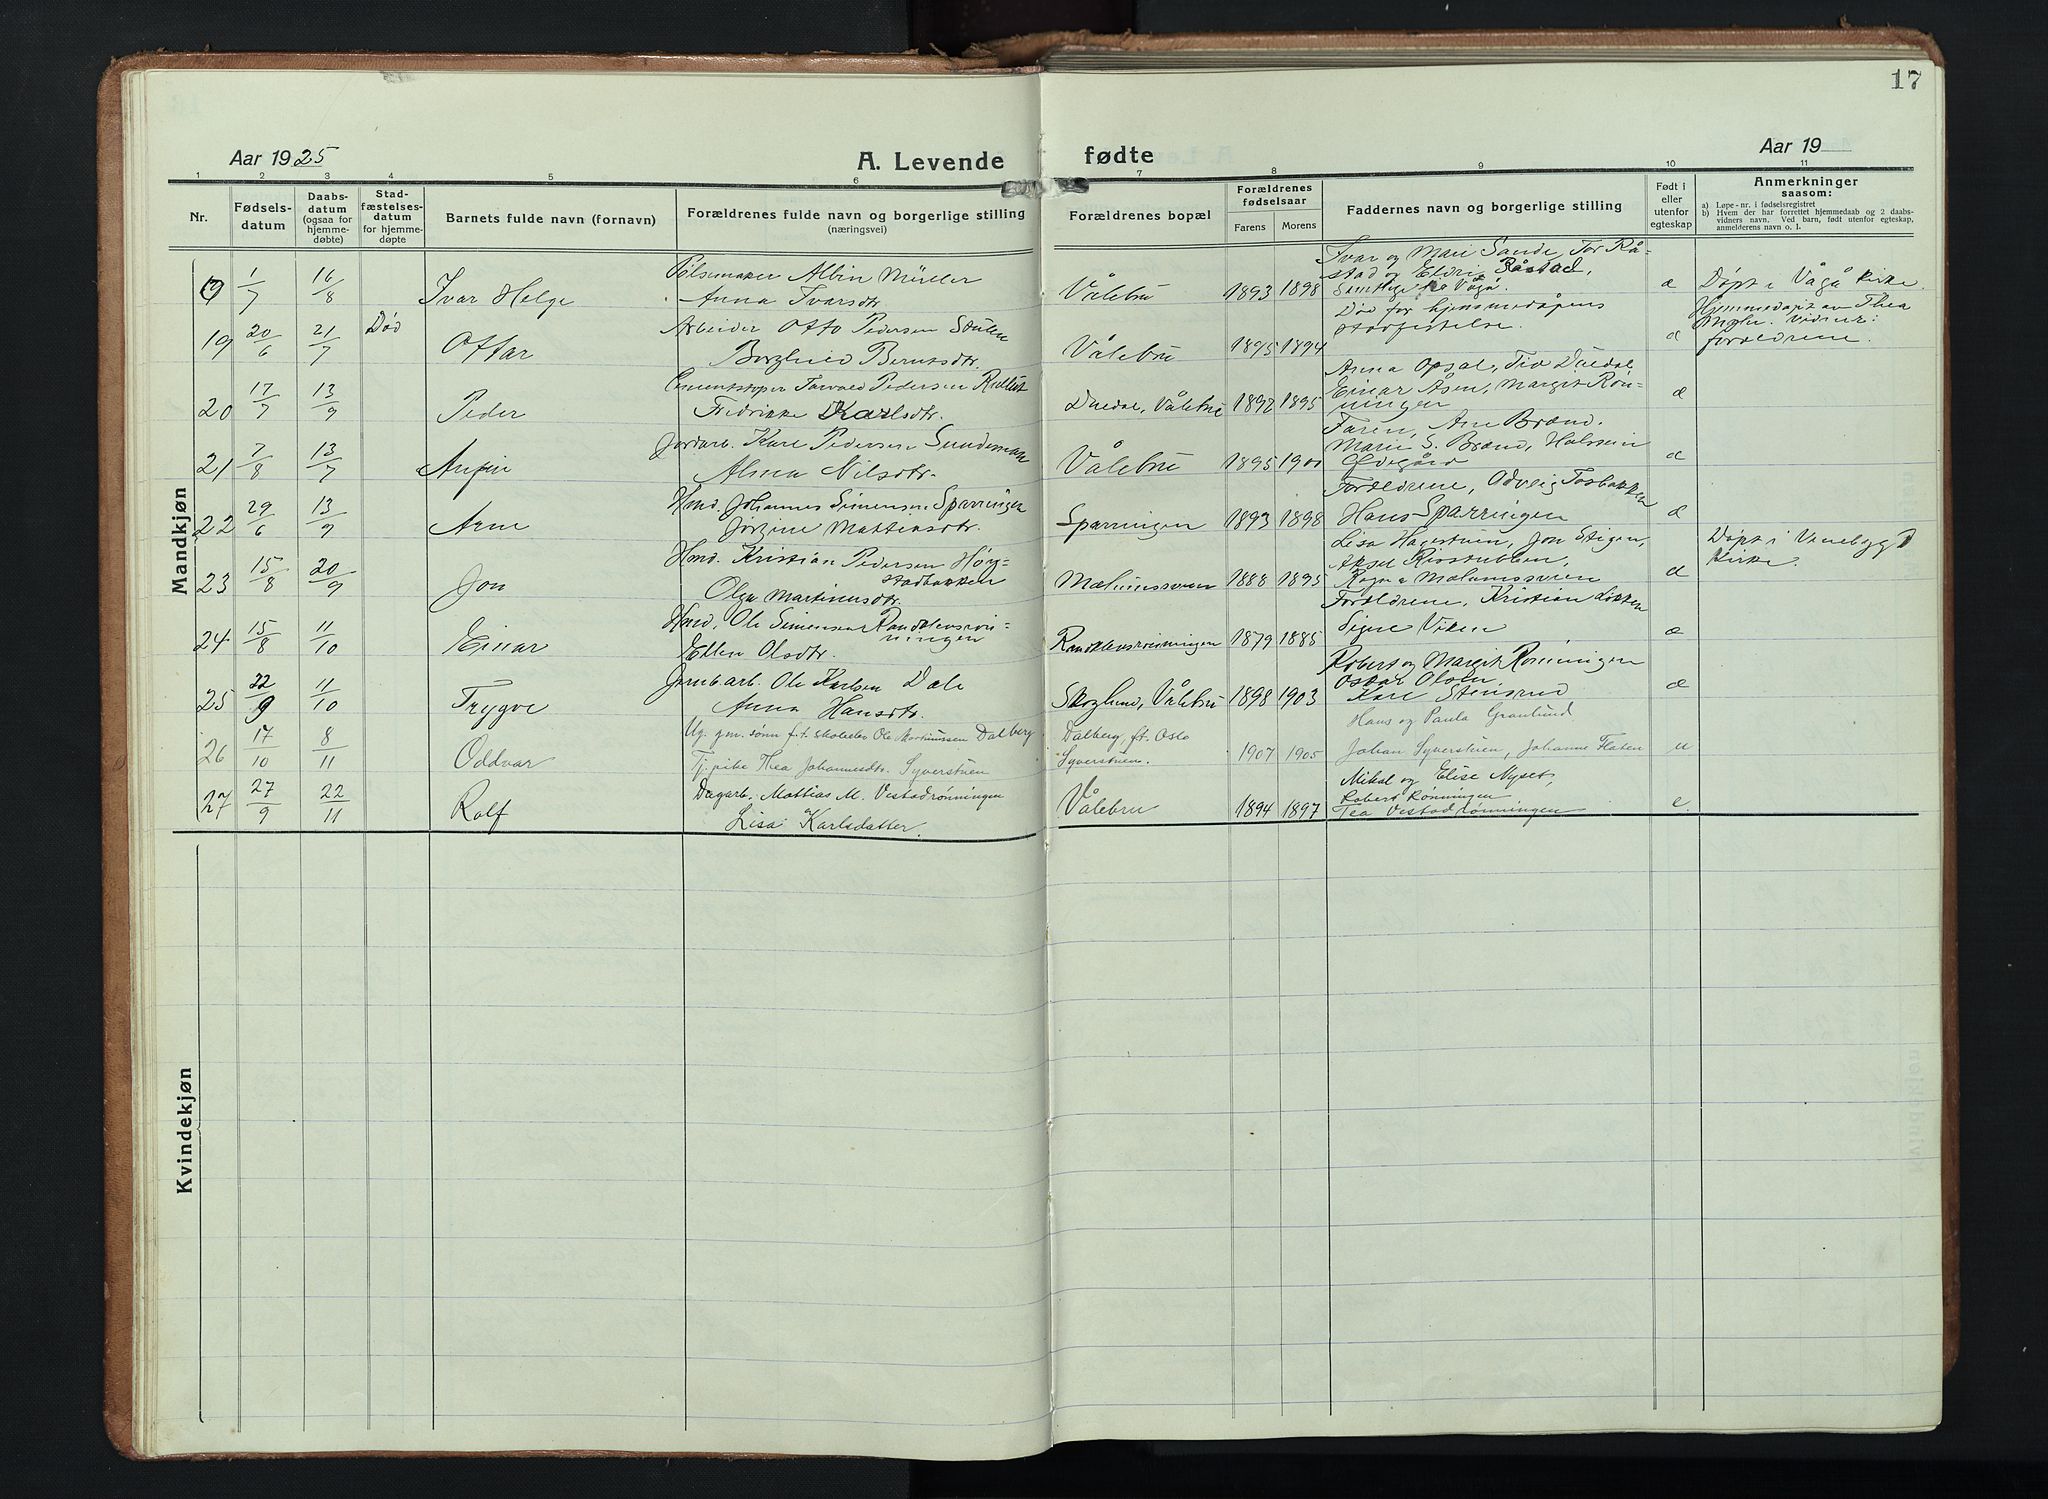 17
Aar 1925
A. Levende fødte
Aar 19
1 2 3 4 5 6 7 8 9 10 11
Nr.
Fødsels-
datum
Daabs-
datum
(ogsaa for
hjemme-
døbte)
Stad-
fæstelses-
datum
for hjemme-
døpte
Barnets fulde navn (fornavn)
Forældrenes fulde navn og borgerlige stilling
(næringsvei)
Forældrenes bopæl
Forældrenes
fødselsaar
Farens Morens
Faddernes navn og borgerlige stilling
Født i
eller
utenfor
egteskap
Anmerkninger
saasom:
a) Løpe-nr. i fødselsregistret
b) Hvem der har forrettet hjemmedaab og 2 daabs-
vidners navn. Ved barn, født utenfor egteskap,
anmelderens navn o. l.
Mandkjøn
1/7 16/8 Ivar Helge
Pølsemaker Albin Müller
Anna Ivarsdtr.
Vålebru 1893 1898
Ivar og Mari Sande, Tor Rå-
stad og Eldri Råstad,
Samtlige fra Vågå.
æ
Døpt i Vågå kirke.
19 20/6 21/7 Død Ottar
Arbeider Otto Pedersen
Borghild Berntsdtr.
Vålebru 1895 1894
Død før hjemmedåpens
stadfestelse.
æ
Hjemmedøpt av Thea
Moln. Vidner:
foreldrene.
20 17/7 13/9 Peder
Cementstøper Torvald Pedersen
Fredrikke Karlsdtr.
Duedal, Vålebru 1892 1895
Anna Opsal, Duedal
Einar Åsen, Margit Røn-
ningen
æ
21 7/8 13/7
Jordarb. Kare Pedersen
Alma Nilsdtr.
Vålebru 1895 1900
Faren, Ane Brænd.
Marie S. Brænd, Halstein
Ødegård
æ
22 29/6 13/9 Arne
Hmd. Johannes Simensen Sparringen
Jørgine Mattiasdtr.
Sparringen 1893 1898
Foreldrene, Odveig
Hans Sparringen
æ
23 15/8 20/9 Jon
Hmd. Kristian Pedersen Høy-
stadbakken
Olga Martinusdtr.
1888 1895
Lisa Hagestuen, Jon Stigen,
Aksel
Ragna
æ
Døpt i Venebygd
kirke.
24 15/8 11/10 Einar
Hmd. Ole Simensen
ningen
Ellen Olsdtr.
1879 1885
Foreldrene, Kristian Løkken
Signe Viken
æ
25 22/9 11/10 Trygve
Jernb.arb. Ole Karlsen Dale
Anna Hansdtr.
Skoglund, Vålebru 1898 1903
Robert og Margit Rønningen
Oskar Olsen
Kari Stensrud
æ
26 17/10 8/11 Oddvar
Ug. gm. sønn f. t. skoleelev Ole Markussen Dalberg
Tj. pike Thea Johannesdtr. Syverstuen
Dalberg, ft. Oslo
Syverstuen.
1907 1905
Hans og Paula Granlund
Johan Syverstuen, Johanne Flaten
u
27 27/9 22/11 Rolf
Dagarb. Mattias M. Vestadrønningen
Lisa Karlsdatter.
Vålebru 1894 1897
Mikal og Elise Nyset,
Robert Rønningen
Tea Vestadrønningen
e.
Kvindekjøn